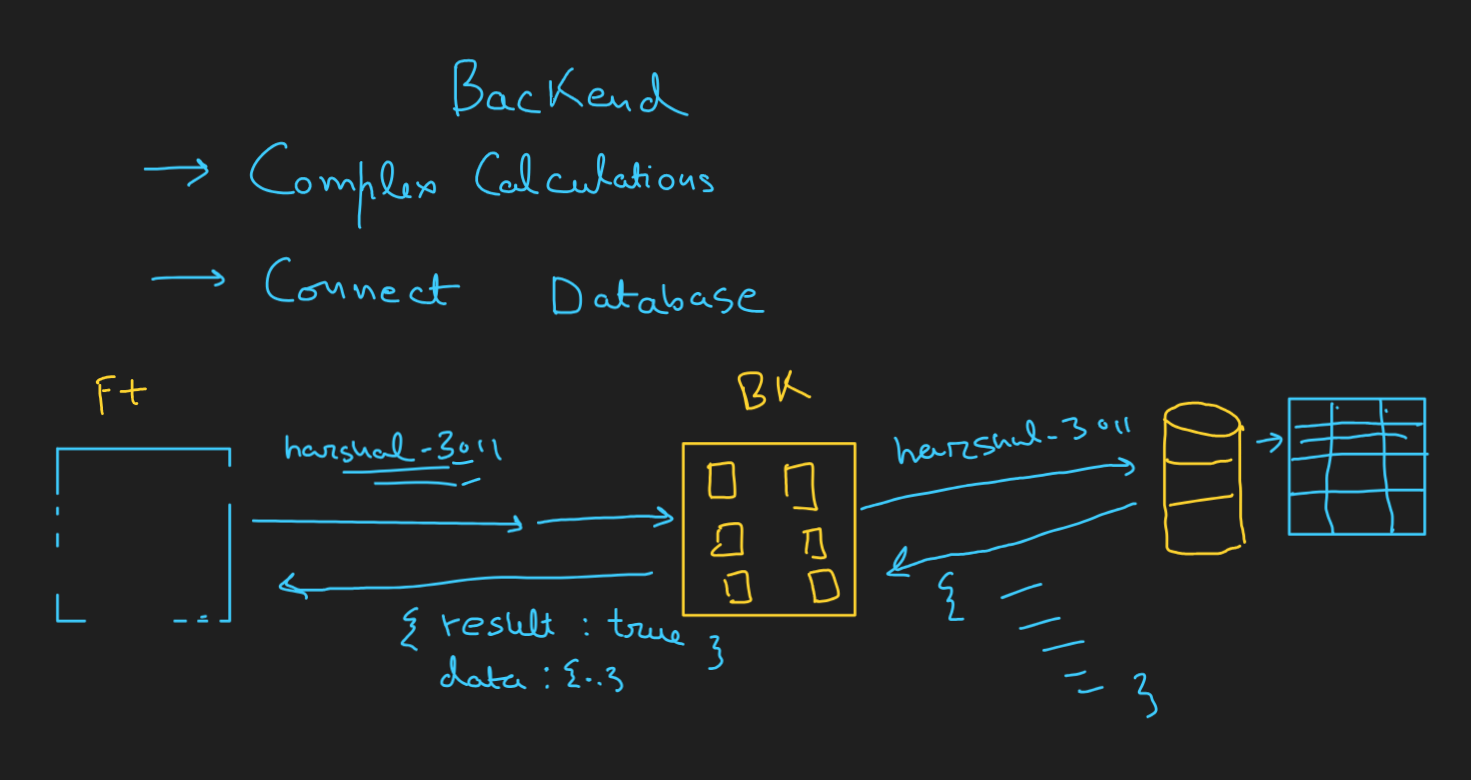 Backend
→ Complex Calculations
→ Connect Database
Ft
BK
harshal-3011
harshal-3011
{ result : true
data : {..} }
{
}